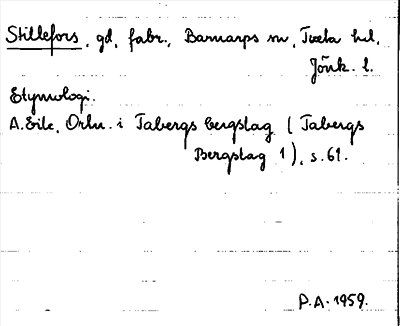 Stillefors, gd, fabr., Barnarps sn, Tveta hd,
Jönk. l.
Etymologi.
A. Eile, Ortn. i Tabergs bergslag (Tabergs
Bergslag 1), s. 61.
P.A. 1959.